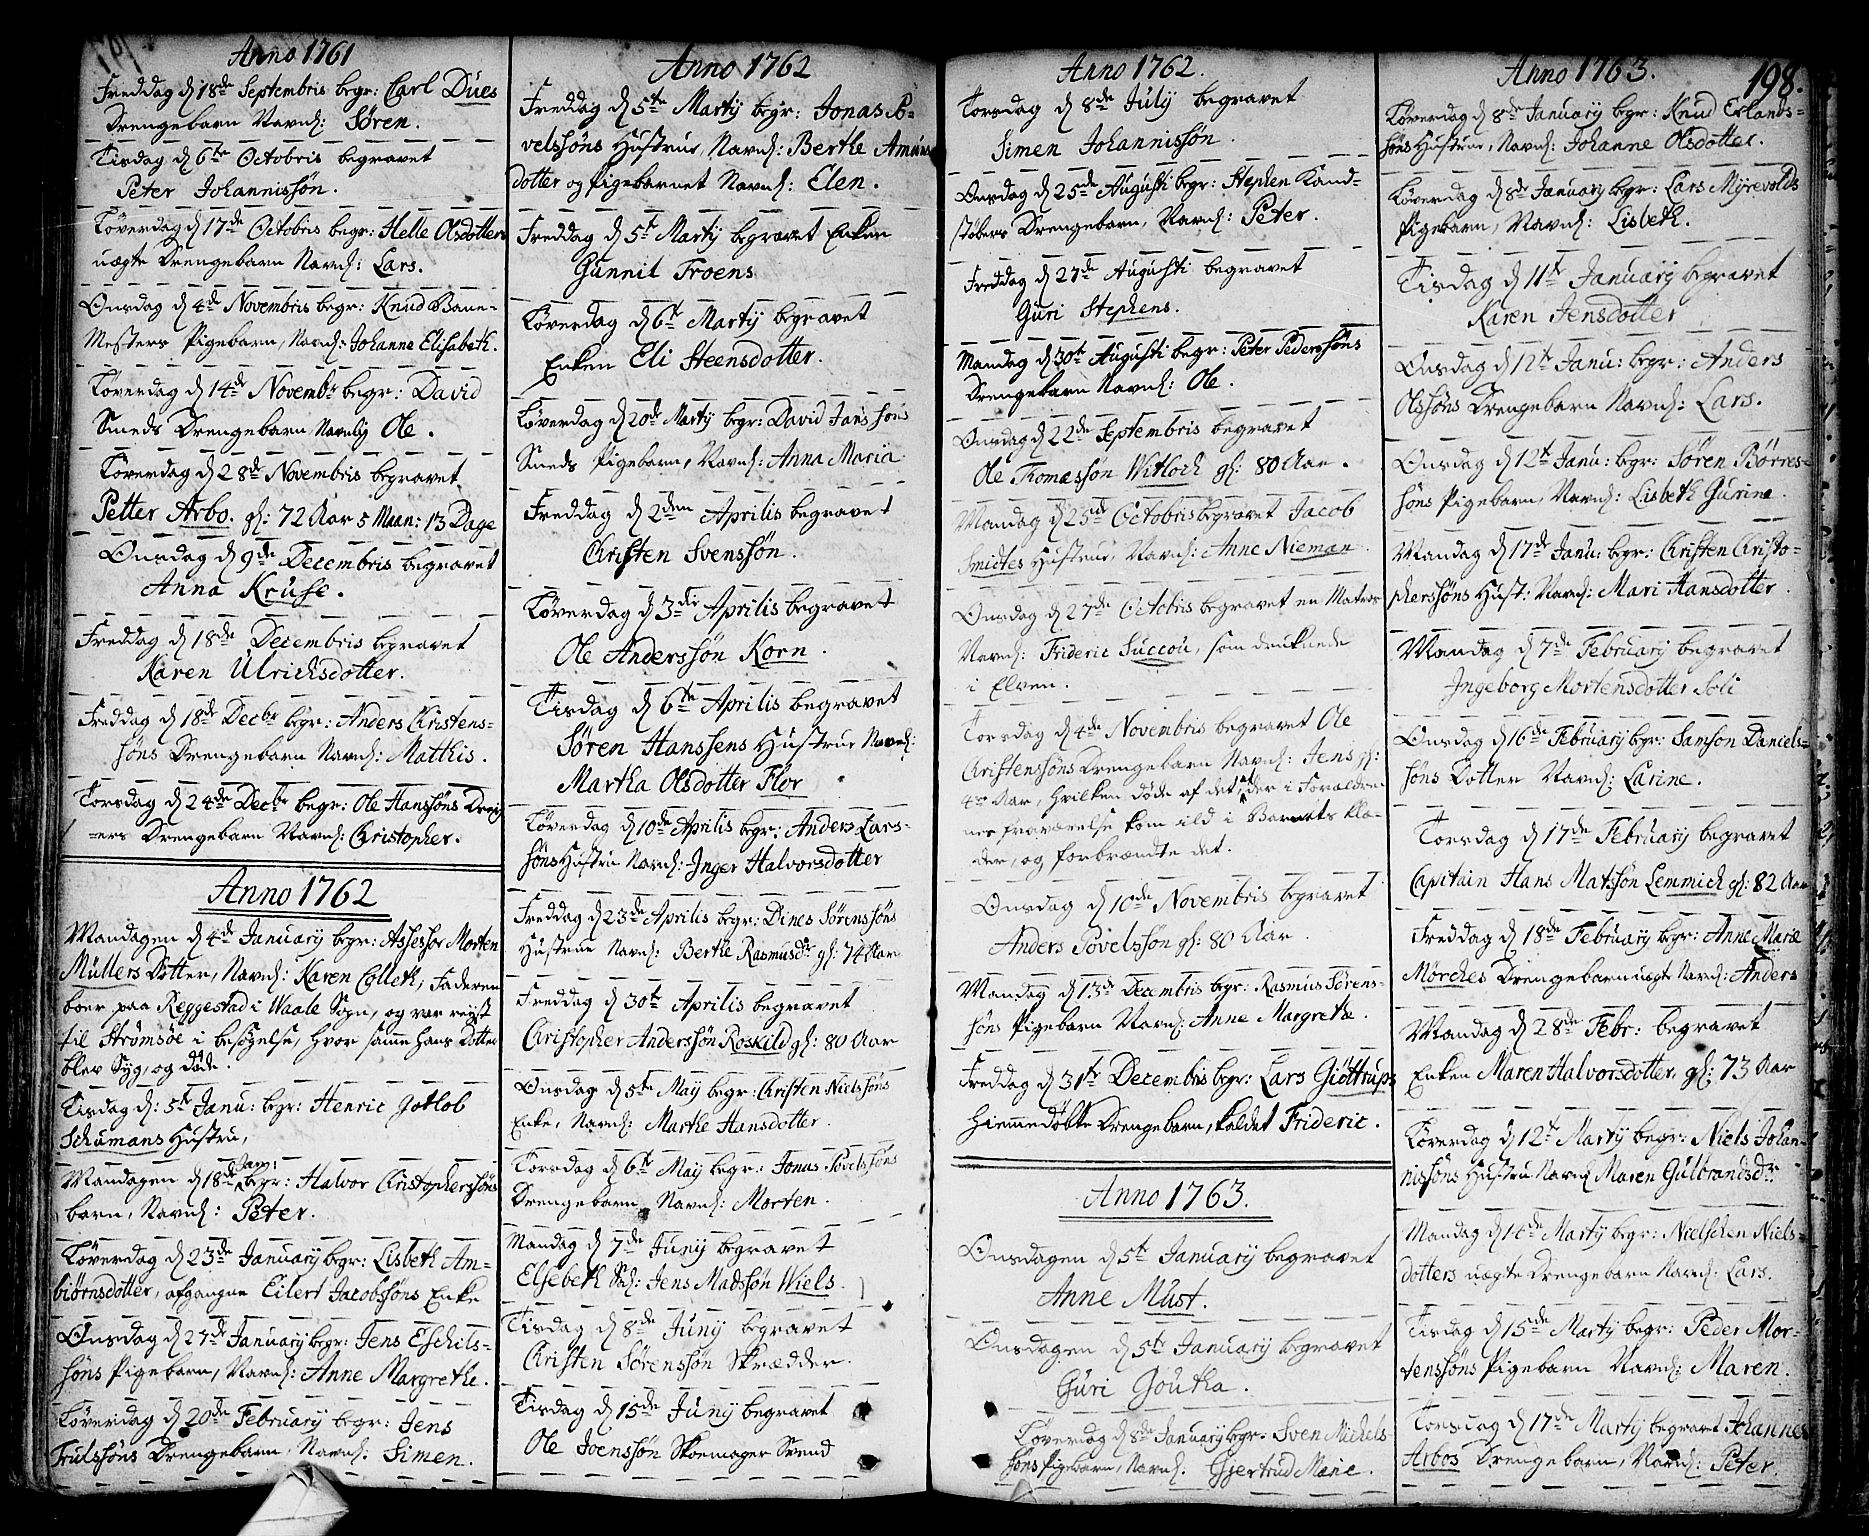 Anno 1761
Freddag d 18de Septembris begr: Carl Dues
Drengebarn Navnl: Søren.
Tisdag d 6te Octobris begravet
Peter Johannissøn.
Løverdag d 17de Octobris begr: Helle Olsdotters
uægte Drengebarn Navnl: Lars.
Onsdag d 4de Novembris begr: Knud Baue-
Mesters Pigebarn, Navnl: Johanne Elisabeth.
Løverdag d 14de Novembr begr: David
Smeds Drengebarn Navnlig Ole.
Løverdag d 28de Novembris begravet
Petter Arbo. gl: 72 Aar 5 Maan: 13 Dage
Onsdag d 9de Decembris begravet
Anna Kruse.
Freddag d 18de Decembris begravet
Karen Ulrichsdotter.
Freddag d 18de Decbr begr: Anders Christens-
søns Drengebarn Navnl: Matthis.
Torsdag d 24de Decbr begr: Ole Hanssøns Drey
-ers Drengebarn Navnl: Christopher.
Anno 1762
Mandagen d 4de January begr: Assessor Morten
Müllers Dotter, Navnl: Karen Colleth, Faderen
boer paa Reggestad i Waale Sogn, og var reyst
til Strømsøe i besøgelse, hvor samme hans Dotter
blev Syg, og døde.
Tisdag d: 5te Janu: begr: Henric Gotlob
Schumans Hustru,
Mandagen d 18de Janu: begr: Halvor Christopherssøns
barn, Navnl: Peter.
Løverdag d 23de January begr: Lisbeth Am-
biørnsdotter, afgangne Eilert Jacobsøns Enke
Onsdag d 27de January begr: Jens Eschils-
søns Pigebarn, Navnl: Anne Margrethe.
Løverdag d 20de February begr: Jens
Trulssøns Drengebarn, Navnl: Simen.
Anno 1762
Freddag d 5te Marty begr: Jonas Po-
velssøns Hustrue, Navnl: Berthe Amunds
dotter og Pigebarnet Navnl: Elen.
Freddag d 5te Marty begravet Enken
Gunnil Troens
Løverdag d 6te Marty begravet
Enken Eli Steensdotter.
Løverdag d 20de Marty begr: David Jans søns
Smeds Pigebarn, Navnl: Anna Maria
Freddag d 2den Aprilis begravet
Christen Svenssøn.
Løverdag d 3die Aprilis begravet
Ole Anderssøn Korn.
Tisdag d 6te Aprilis begravet
Søren Hanssens Hustrue Navnl:
Martha Olsdotter Flor
Løverdag d 10de Aprilis begr: Anders Lars-
søns Hustru Navnl: Inger Halvorsdotter
Freddag d 23de Aprilis begr: Dines Sørenssøns
Hustrue Navnl: Berthe Rasmusdr gl: 74 Aar
Freddag d 30te Aprilis begravet
Christopher Anderssøn Roskild gl: 80 Aar
Onsdag d 5te May begr: Christen Nielssøns
Enke, Navnl: Marthe Hansdotter.
Torsdag d 6te May begr: Jonas Povelssøns
Drengebarn, Navnl: Morten.
Mandag d 7de Juny begravet
Elsebeth Sl: Jens Madssøn Wiels.
Tisdag d 8de Juny begravet
Christen Sørenssøn Skrædder.
Tisdag d 15de Juny begravet
Ole Joenssøn Skoemager Svend
Anno 1762.
Torsdag d 8de July begravet
Simen Johannissøn.
Onsdag d 25de Augusti begr: Stephen Kand-
støbers Drengebarn, Navnl: Peter.
Freddag d 27de Augusti begravet
Guri Stephens.
Mandag d 30te Augusti begr: Peter Pederssøns
Drengebarn Navnl: Ole.
Onsdag d 22de Septembris begravet
Ole Thomæssøn Witloch gl: 80 Aar.
Mandag d 25de Octobris begravet Jacob
Smidtes Hustrue, Navnl: Anne Nieman.
Onsdag d 27de Octobris begravet en Matros
Navnl: Frideric Succou, som druknede
i Elven.
Torsdag d 4de Novembris begravet Ole
Christenssøns Drengebarn Navnl: Jens gl:
4re Aar, hvilken døde af det at der i Forældre-
nes fraværelse kom ild i Barnets klæ-
der, og forbrændte det.
Onsdag d 10de Novembris begravet
Anders Povelssøn gl: 80 Aar.
Mandag d 13de Decembris begr: Rasmus Sørens-
søns Pigebarn Navnl: Anne Margrethe.
Freddag d 31te Decembris begr: Lars Giøttrups
hiemmedøbte Drengebarn, kaldet Frideric.
Anno 1763.
Onsdagen d 5te January begravet
Anne Must.
Onsdagen d 5te January begravet
Guri Goutha.
Løverdag d 8de January begr. Sven Michels
søns Pigebarn, Navnl. Gjertrud Marie.
Anno 1763.
198.
Løverdag d 8de January begr: Knud Erlands-
søns Hustrue, Navnl: Johanne Olsdotter.
Løverdag d 8de January begr: Lars Myrevolds
Pigebarn, Navnl: Lisbeth.
Tisdag d 11te January begravet
Karen Jensdotter
Onsdag d 12te Janu: begr: Anders
Olssøns Drengebarn Navnl: Lars.
Onsdag d 12te Janu: begr: Søren Børres-
søns Pigebarn, Navnl: Lisbeth Gurine.
Mandag d 17de Janu: begr: Christen Christo-
pherssøns Hust: Navnl: Mari Hansdotter.
Mandag d 7de February begravet
Ingeborg Mortensdotter Soli
Onsdag d 16de February begr: Samson Daniels-
søns Dotter Navnl: Carine.
Torsdag d 17de February begravet
Capitain Hans Matssøn Lemmich gl: 82 Aar
Freddag d 18de February begr: Anne Marie
Mørches Drengebarn uægte Navnl: Anders
Mandag d 28de Febr: begravet
Enken Maren Halvorsdotter, gl: 73 Aar
Løverdag d 12te Marty begr: Niels Johan-
nissøns Hustru Navnl Maren Gulbrandsdr:
Mandag d 14de Marty begr: Nielschen Niels-
dotters uægte Drengebarn Navnl: Lars.
Tisdag d 15de Marty begr: Peder Mor-
tenssøns Pigebarn Navnl: Maren.
Torsdag d 17de Marty begravet Johannes
Arbos Drengebarn, Navnl: Peter.